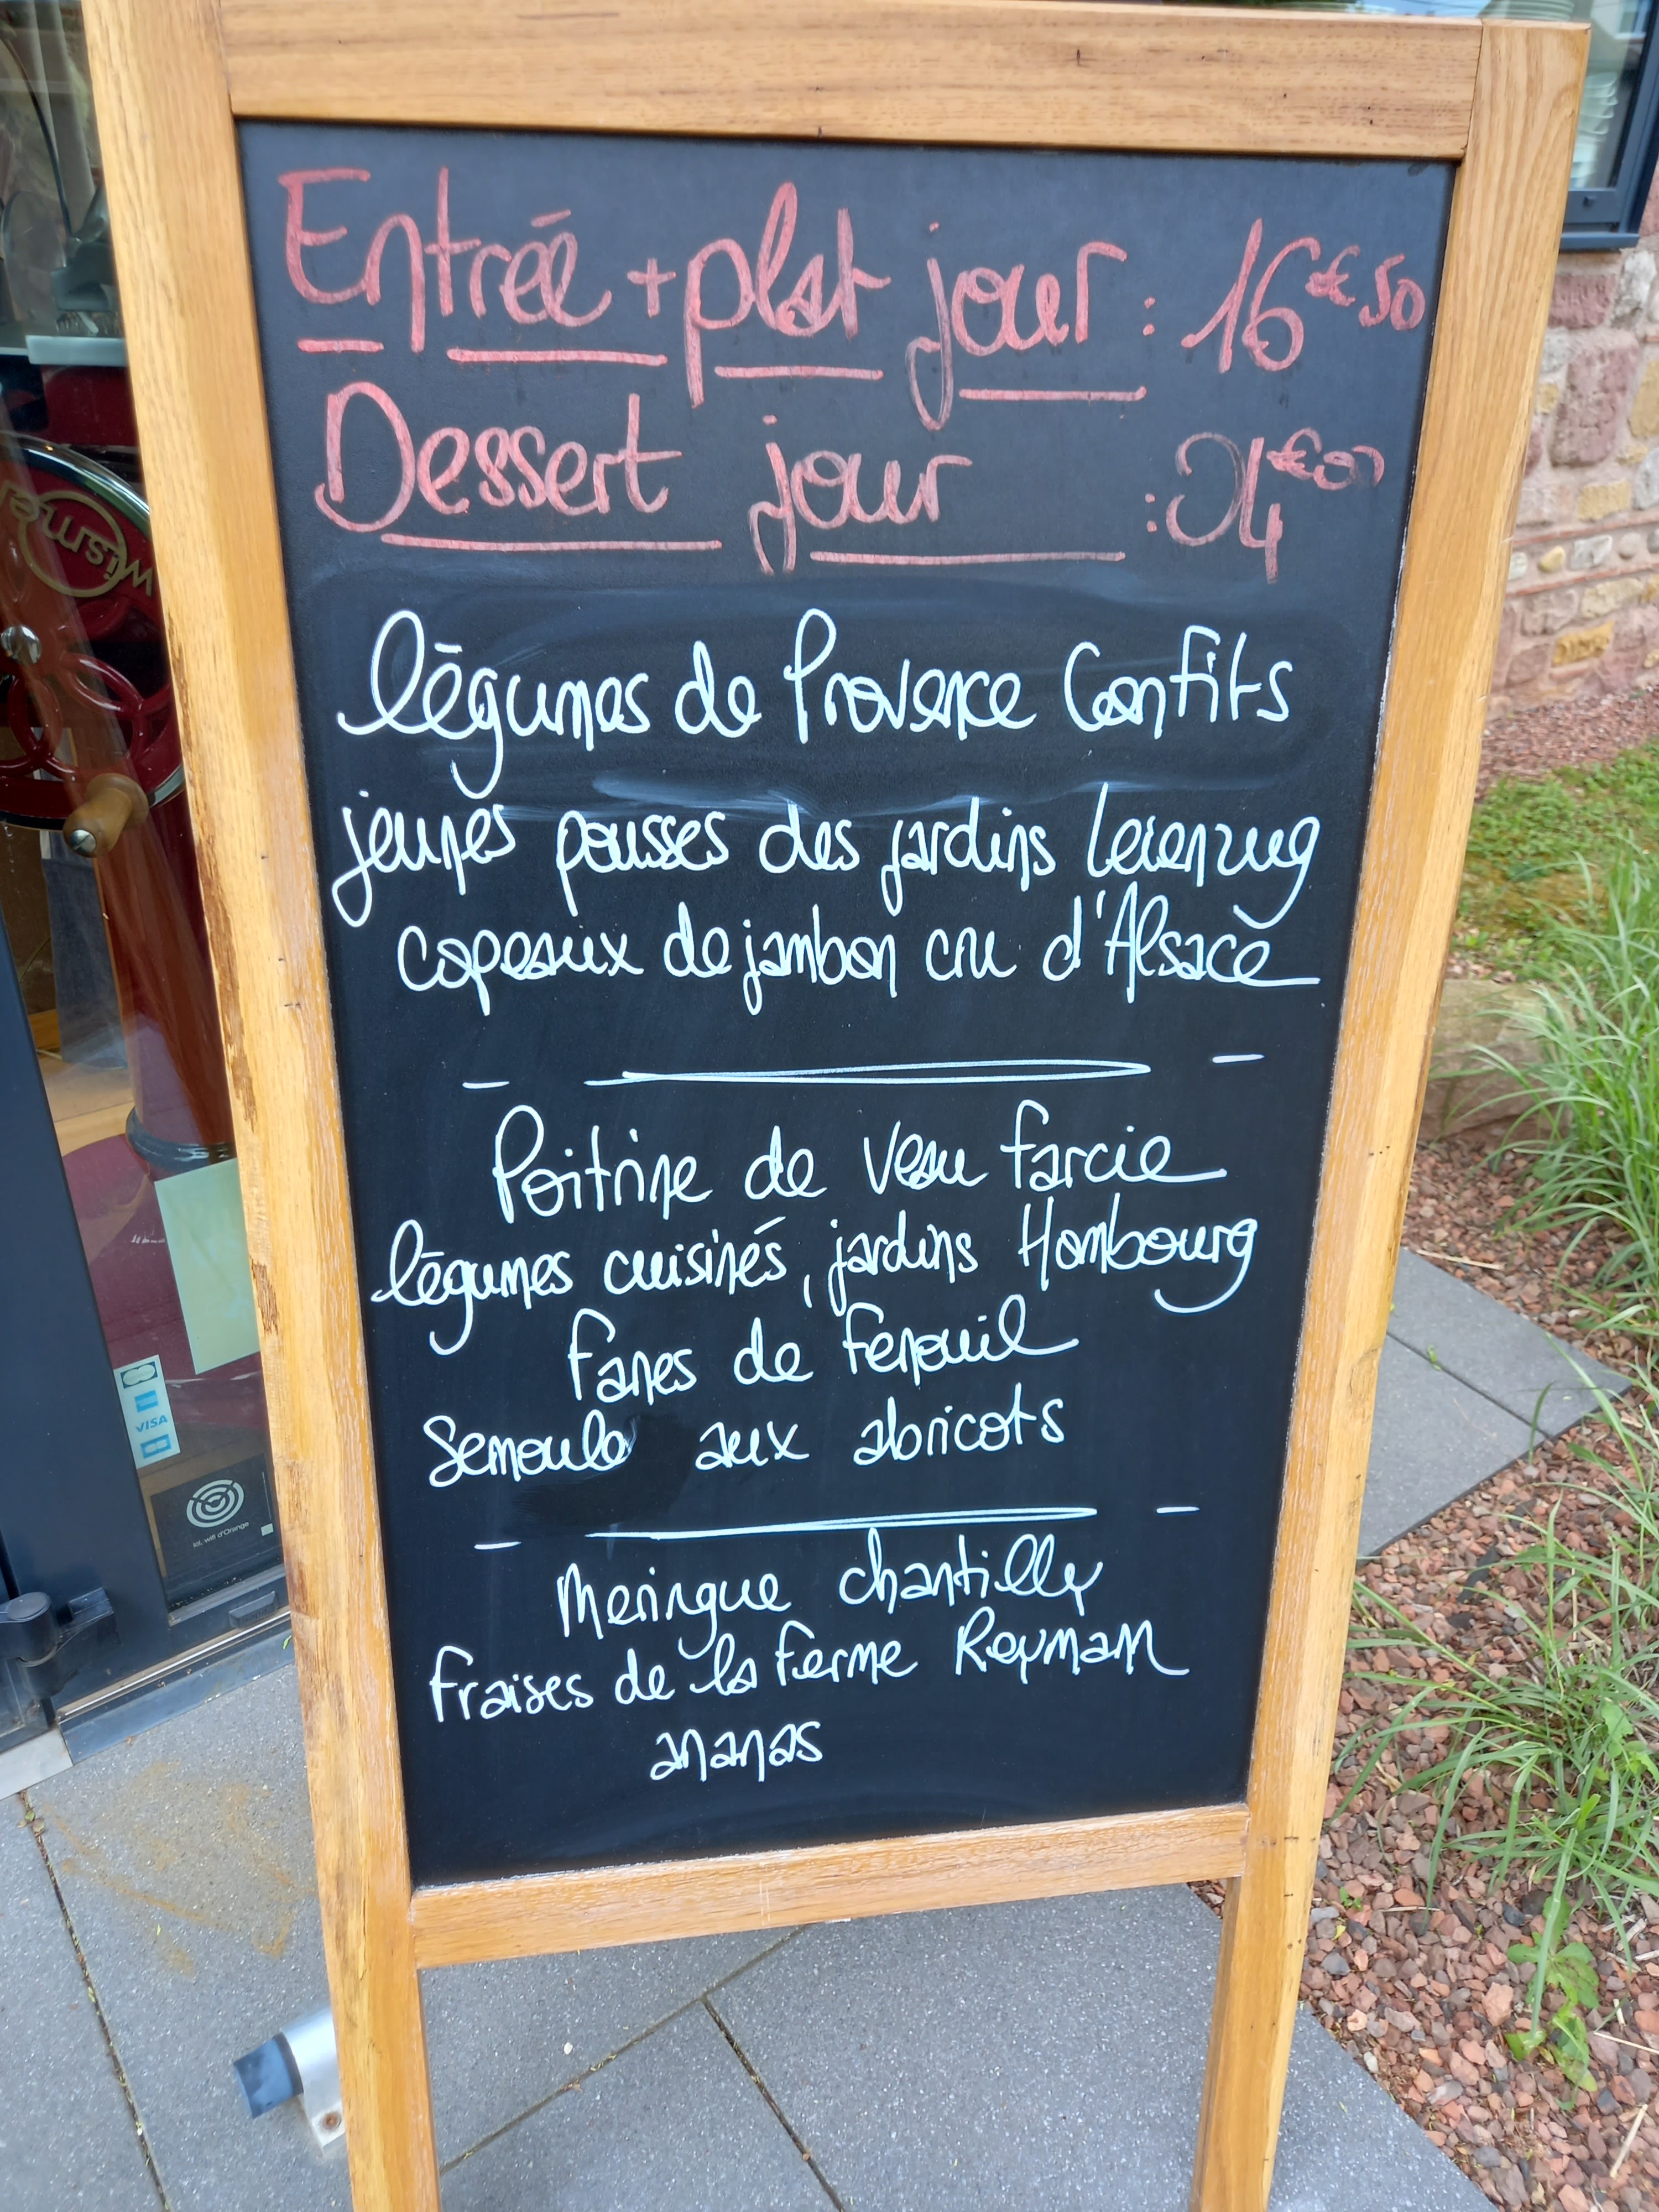 Entrée + plat jour : 16€50
Dessert jour : 04€00
légumes de Provence Confits
jeunes pousses des jardins
copeaux de jambon cru d'Alsace
Poitrine de veau farcie
légumes cuisinés, jardins Hombourg
fanes de fenouil
Semoule aux abricots
Meringue chantilly
fraises de la ferme Reymann
ananas
VISA